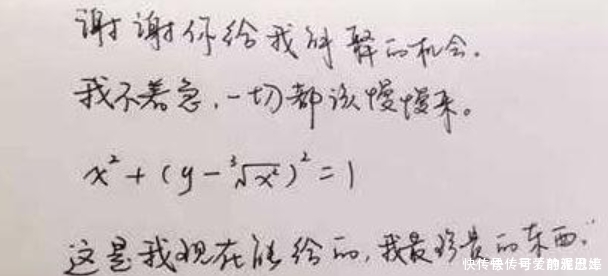 谢谢你给我解释的机会.
我不着急,一切都该慢慢来。
x² + (y - ∛x²)² = 1
这是我现在能给的,我最珍贵的东西."